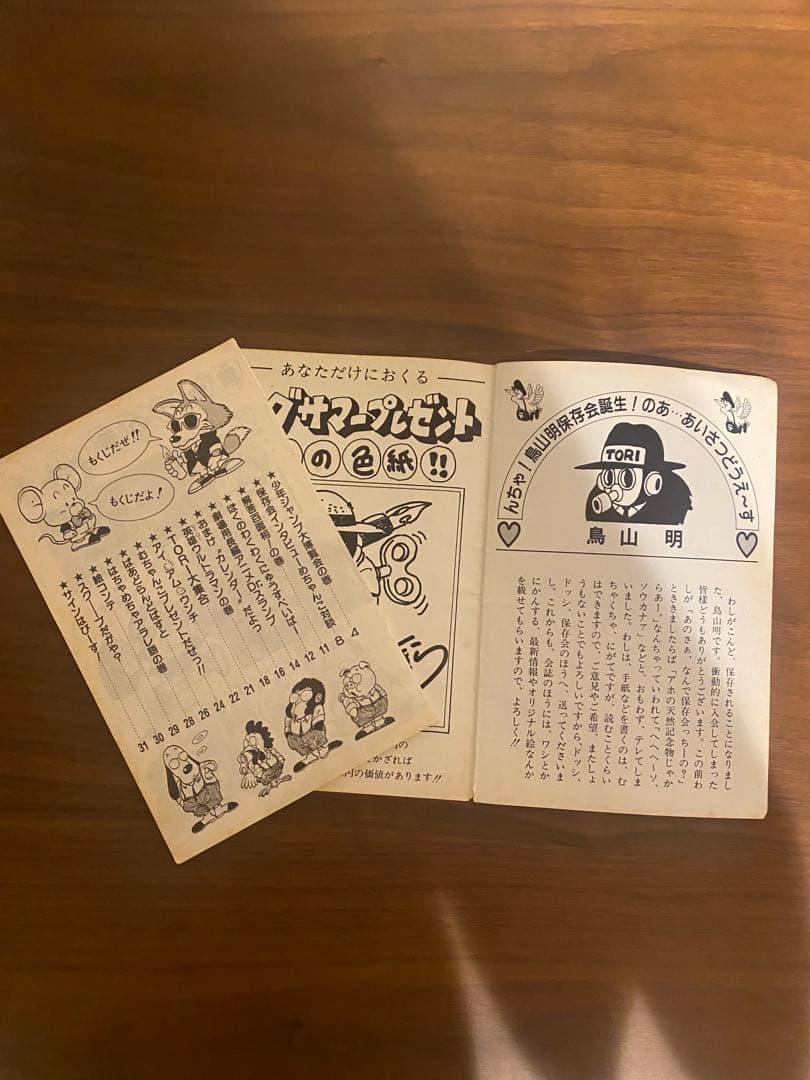 んちゃ!鳥山明保存会誕生!のあ…あいさつどうえ〜す
TORI
鳥山 明
わしがこんど、保存されることになりまし
た、鳥山明です。衝動的に入会してしまった
皆様どうもありがとうございます。この前わ
しが「あのさぁ、なんで保存会っちーの?」
とききましたらば、「アホの天然記念物じゃか
らあー。」なんちゃっていわれて、「へへへ〜ソ、
ソウカナァ」などと、おもわず、テレてしま
いました。わしは、手紙などを書くのは、む
ちゃくちゃ、にがてですが、読むことくらい
はできますので、ご意見やご希望、またしょ
うもないことでもよろしいですから、ドッシ、
ドッシ、保存会のほうへ、送ってくださいま
し。これからも、会誌のほうには、ワシとか
にかんする、最新情報やオリジナル絵なんか
を載せてもらいますので、よろしく!!
あなただけにおくる
グサマープレゼント
の色紙!!
かざれば
の価値があります!!
もくじだぜ!!
もくじだよ!
★少年ジャンプ大博覧会の巻 4
★保存会インタビューめちゃんこ対談 8
★解答百面相ーの巻 11
★ぼくのわくわくにゅうす、へいぱー 12
★劇場用長編アニメDr.スランプ 14
★おまけ“カレンダー”だよっ 16
★英雄ウルトラマンの巻 18
★TORI大集合 21
★ワイ・アム・ウンチ 22
★むちゃんこプレゼントだぜっ!! 24
★ばあどらんどぽすと 26
★はちゃめちゃアラレ語の巻 28
★絵コンテ 29
★スクープだがや? 30
★サインはぴーす! 31